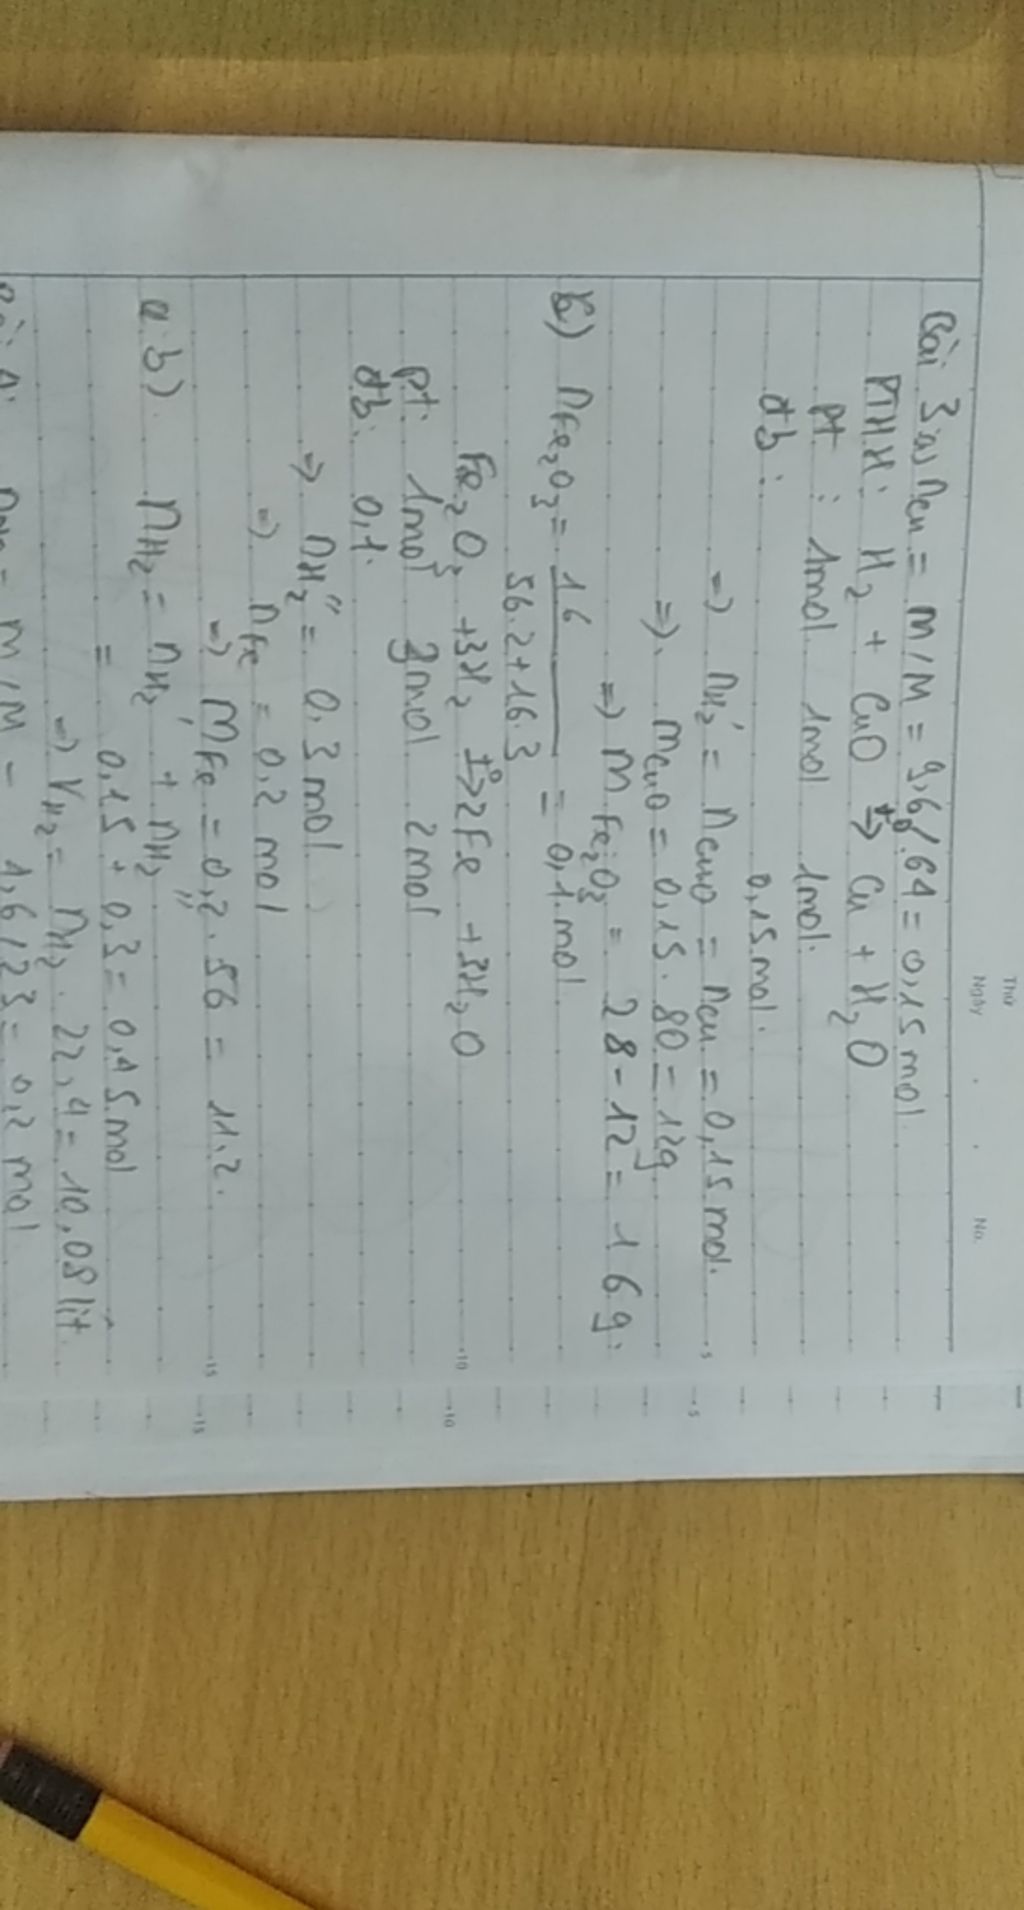 Thứ
Ngày . . No.
Bài 3. a) nCu = m/M = 9,6/64 = 0,15 mol
PTHH: H₂ + CuO t°→ Cu + H₂O
pt : 1mol 1mol 1mol.
đb : 0,15 mol.
=) nH₂' = nCuO = nCu = 0,15 mol.
=). mCuO = 0,15. 80 = 12g
=) m Fe₂O₃ = 28 - 12 = 16g.
b) nFe₂O₃ = 16 / 56.2+16.3 = 0,1.mol.
Fe₂O₃ +3H₂ t°→ 2Fe +3H₂O
pt: 1mol 3mol 2mol
đb: 0,1.
=) nH₂" = 0,3 mol.
=) nFe = 0,2 mol
=) mFe = 0,2. 56 = 11,2.
a.b). nH₂ = nH₂' + nH₂"
= 0,15 + 0,3 = 0,45 mol
=) VH₂ = nH₂. 22,4 = 10,08 lít.
= m/M = 4,6/23 = 0,2 mol
5
10
15
10
15